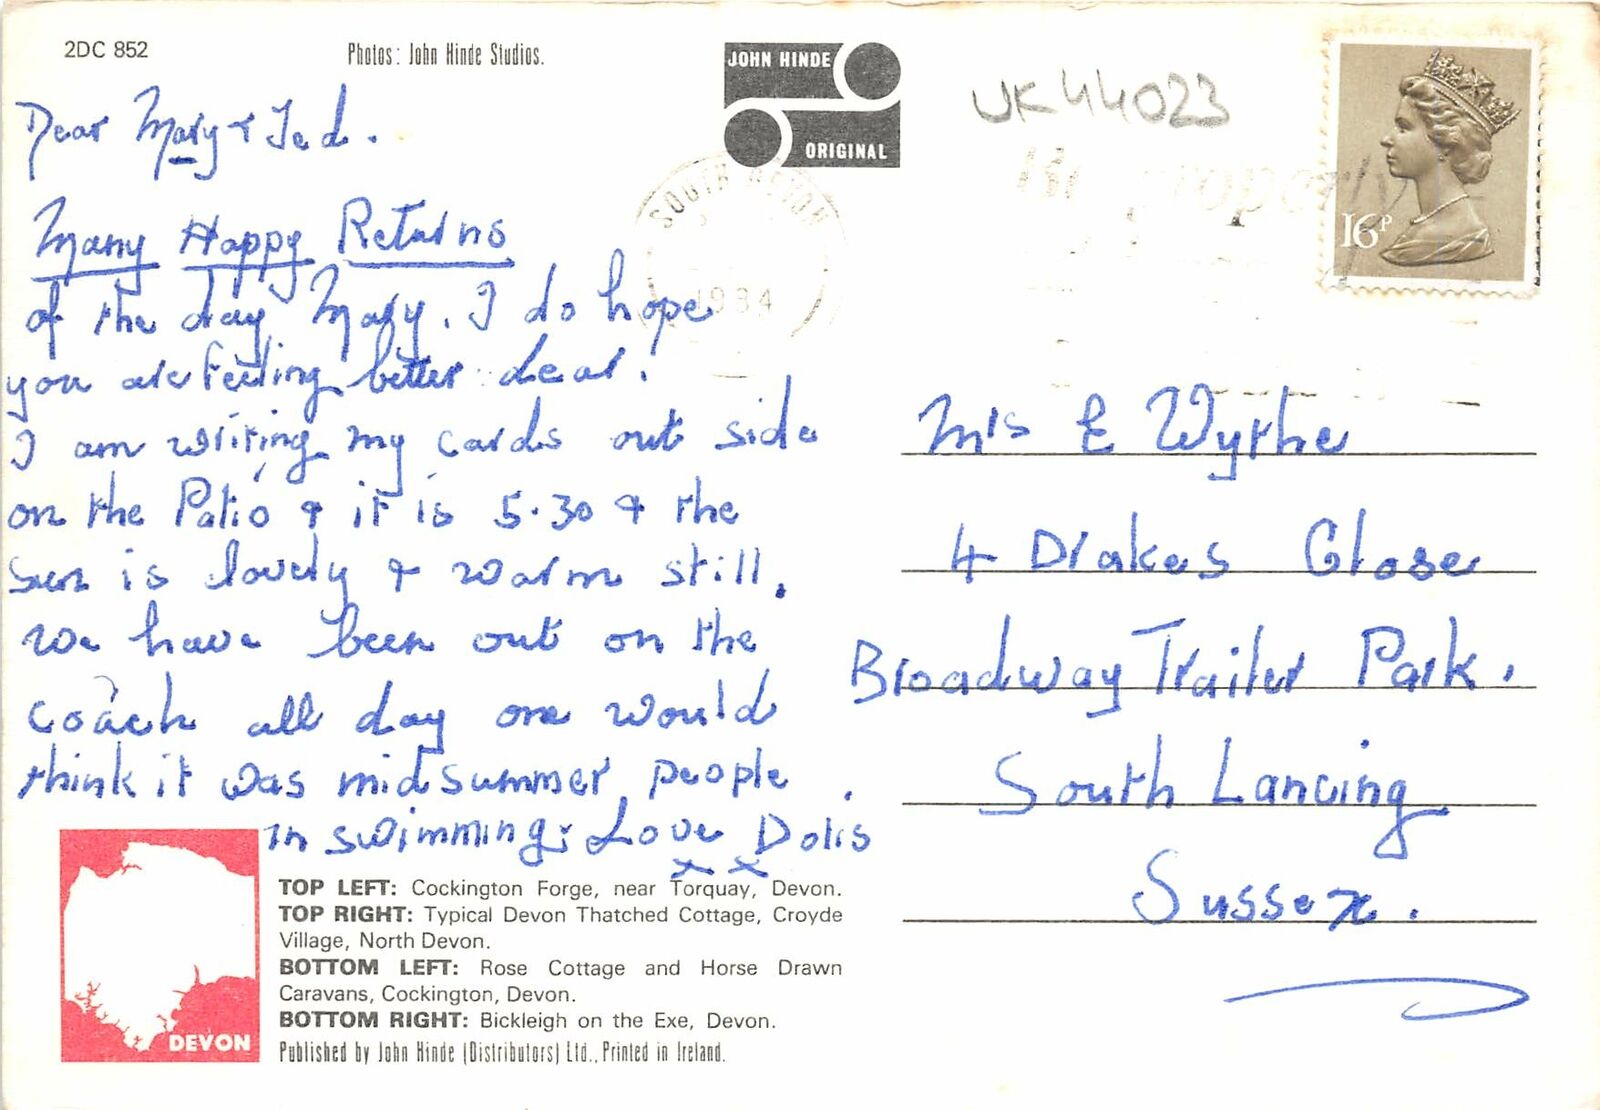 2DC 852
Photos: John Hinde Studios.
JOHN HINDE
ORIGINAL
UK44023
SOUTH DEVON
1984
16P
Dear Mary & Ted.
Many Happy Returns
of the day Mary. I do hope
you are feeling better dear.
I am writing my cards out side
on the Patio & it is 5.30 & the
sun is lovely & warm still.
we have been out on the
coach all day one would
think it was midsummer people
in swimming. Love Doris
x x
Mrs E Wythe
4 Drakes Close
Broadway Trailer Park.
South Lancing
Sussex.
DEVON
TOP LEFT: Cockington Forge, near Torquay, Devon.
TOP RIGHT: Typical Devon Thatched Cottage, Croyde
Village, North Devon.
BOTTOM LEFT: Rose Cottage and Horse Drawn
Caravans, Cockington, Devon.
BOTTOM RIGHT: Bickleigh on the Exe, Devon.
Published by John Hinde (Distributors) Ltd., Printed in Ireland.